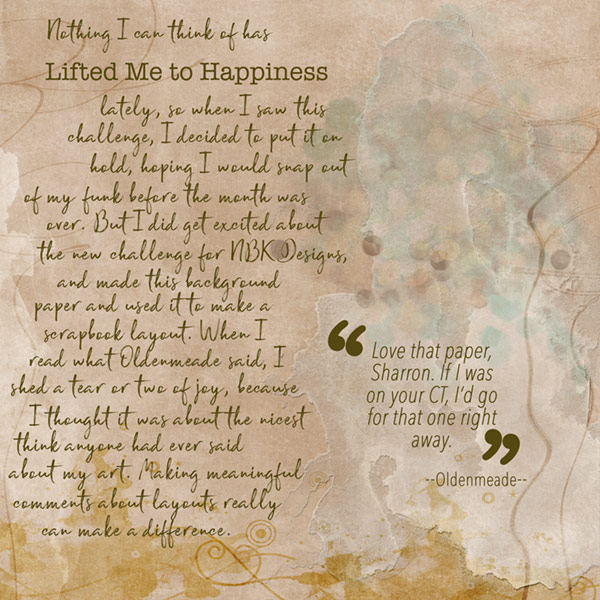 Nothing I can think of has
Lifted Me to Happiness
lately, so when I saw this
challenge, I decided to put it on
hold, hoping I would snap out
of my funk before the month was
over. But I did get excited about
the new challenge for NBK Designs,
and made this background
paper and used it to make a
scrapbook layout. When I
read what Oldenmeade said, I
shed a tear or two of joy, because
I thought it was about the nicest
think anyone had ever said
about my art. Making meaningful
comments about layouts really
can make a difference.
“Love that paper,
Sharron. If I was
on your CT, I’d go
for that one right
away.”
--Oldenmeade--